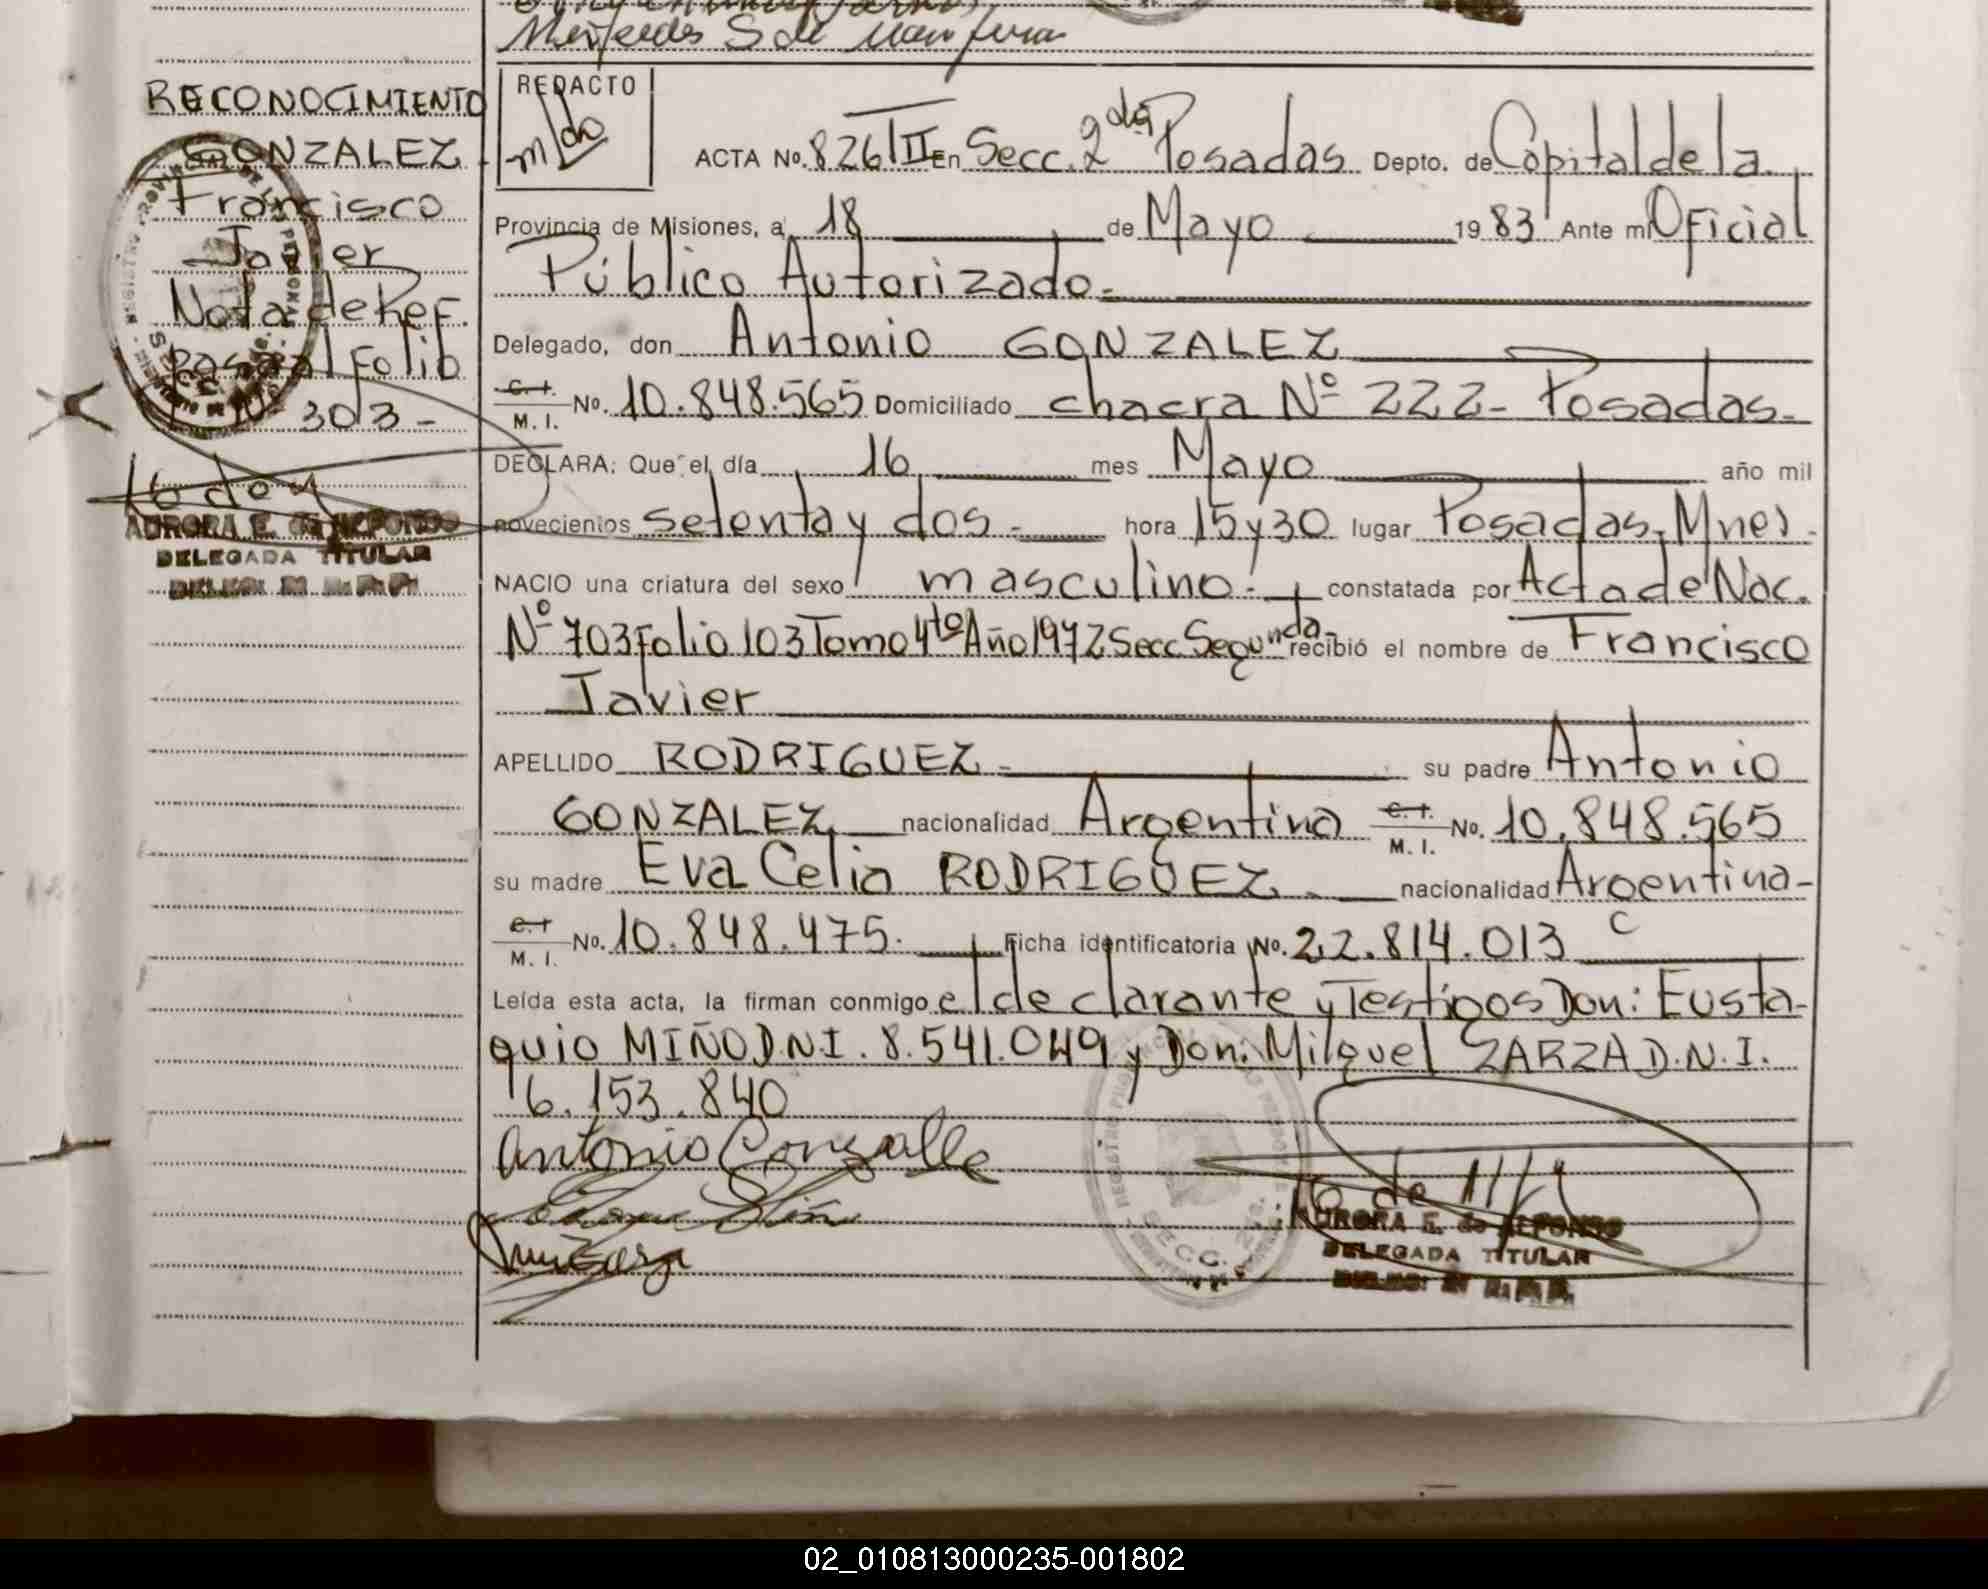 Mercedes S de
RECONOCIMIENTO
GONZALEZ
Francisco
Javier
Nota de Ref.
Folio
303-
AURORA E. de ALFONSO
DELEGADA TITULAR
REDACTO
ACTA No. 826 TII En Secc. 2da Posadas Depto. de Capital de la
Provincia de Misiones, a 18 de Mayo 1983 Ante mi Oficial
Público Autorizado.-
Delegado, don Antonio GONZALEZ
C.I. M.I. No. 10.848.565 Domiciliado chacra Nº 222- Posadas-
DECLARA: Que el día 16 mes Mayo año mil
novecientos setenta y dos.- hora 15 y 30 lugar Posadas, Mnes.
NACIO una criatura del sexo masculino.- constatada por Acta de Nac.
Nº 703 Folio 103 Tomo 4to Año 1972 Secc Segunda- recibió el nombre de Francisco
Javier
APELLIDO RODRIGUEZ.- su padre Antonio
GONZALEZ nacionalidad Argentina C.I. M.I. No. 10.848.565
su madre Eva Celia RODRIGUEZ nacionalidad Argentina-
C.I M.I. No. 10.848.475. Ficha identificatoria No. 22.814.013 C
Leída esta acta, la firman conmigo el declarante y Testigos Don: Eusta-
quio MIÑO D.N.I. 8.541.049 y Don: Milquel ZARZA D.N.I.
6.153.840
Antonio Gonzalle
SECC. 2da.
AURORA E. de ALFONSO
DELEGADA TITULAR
02_010813000235-001802